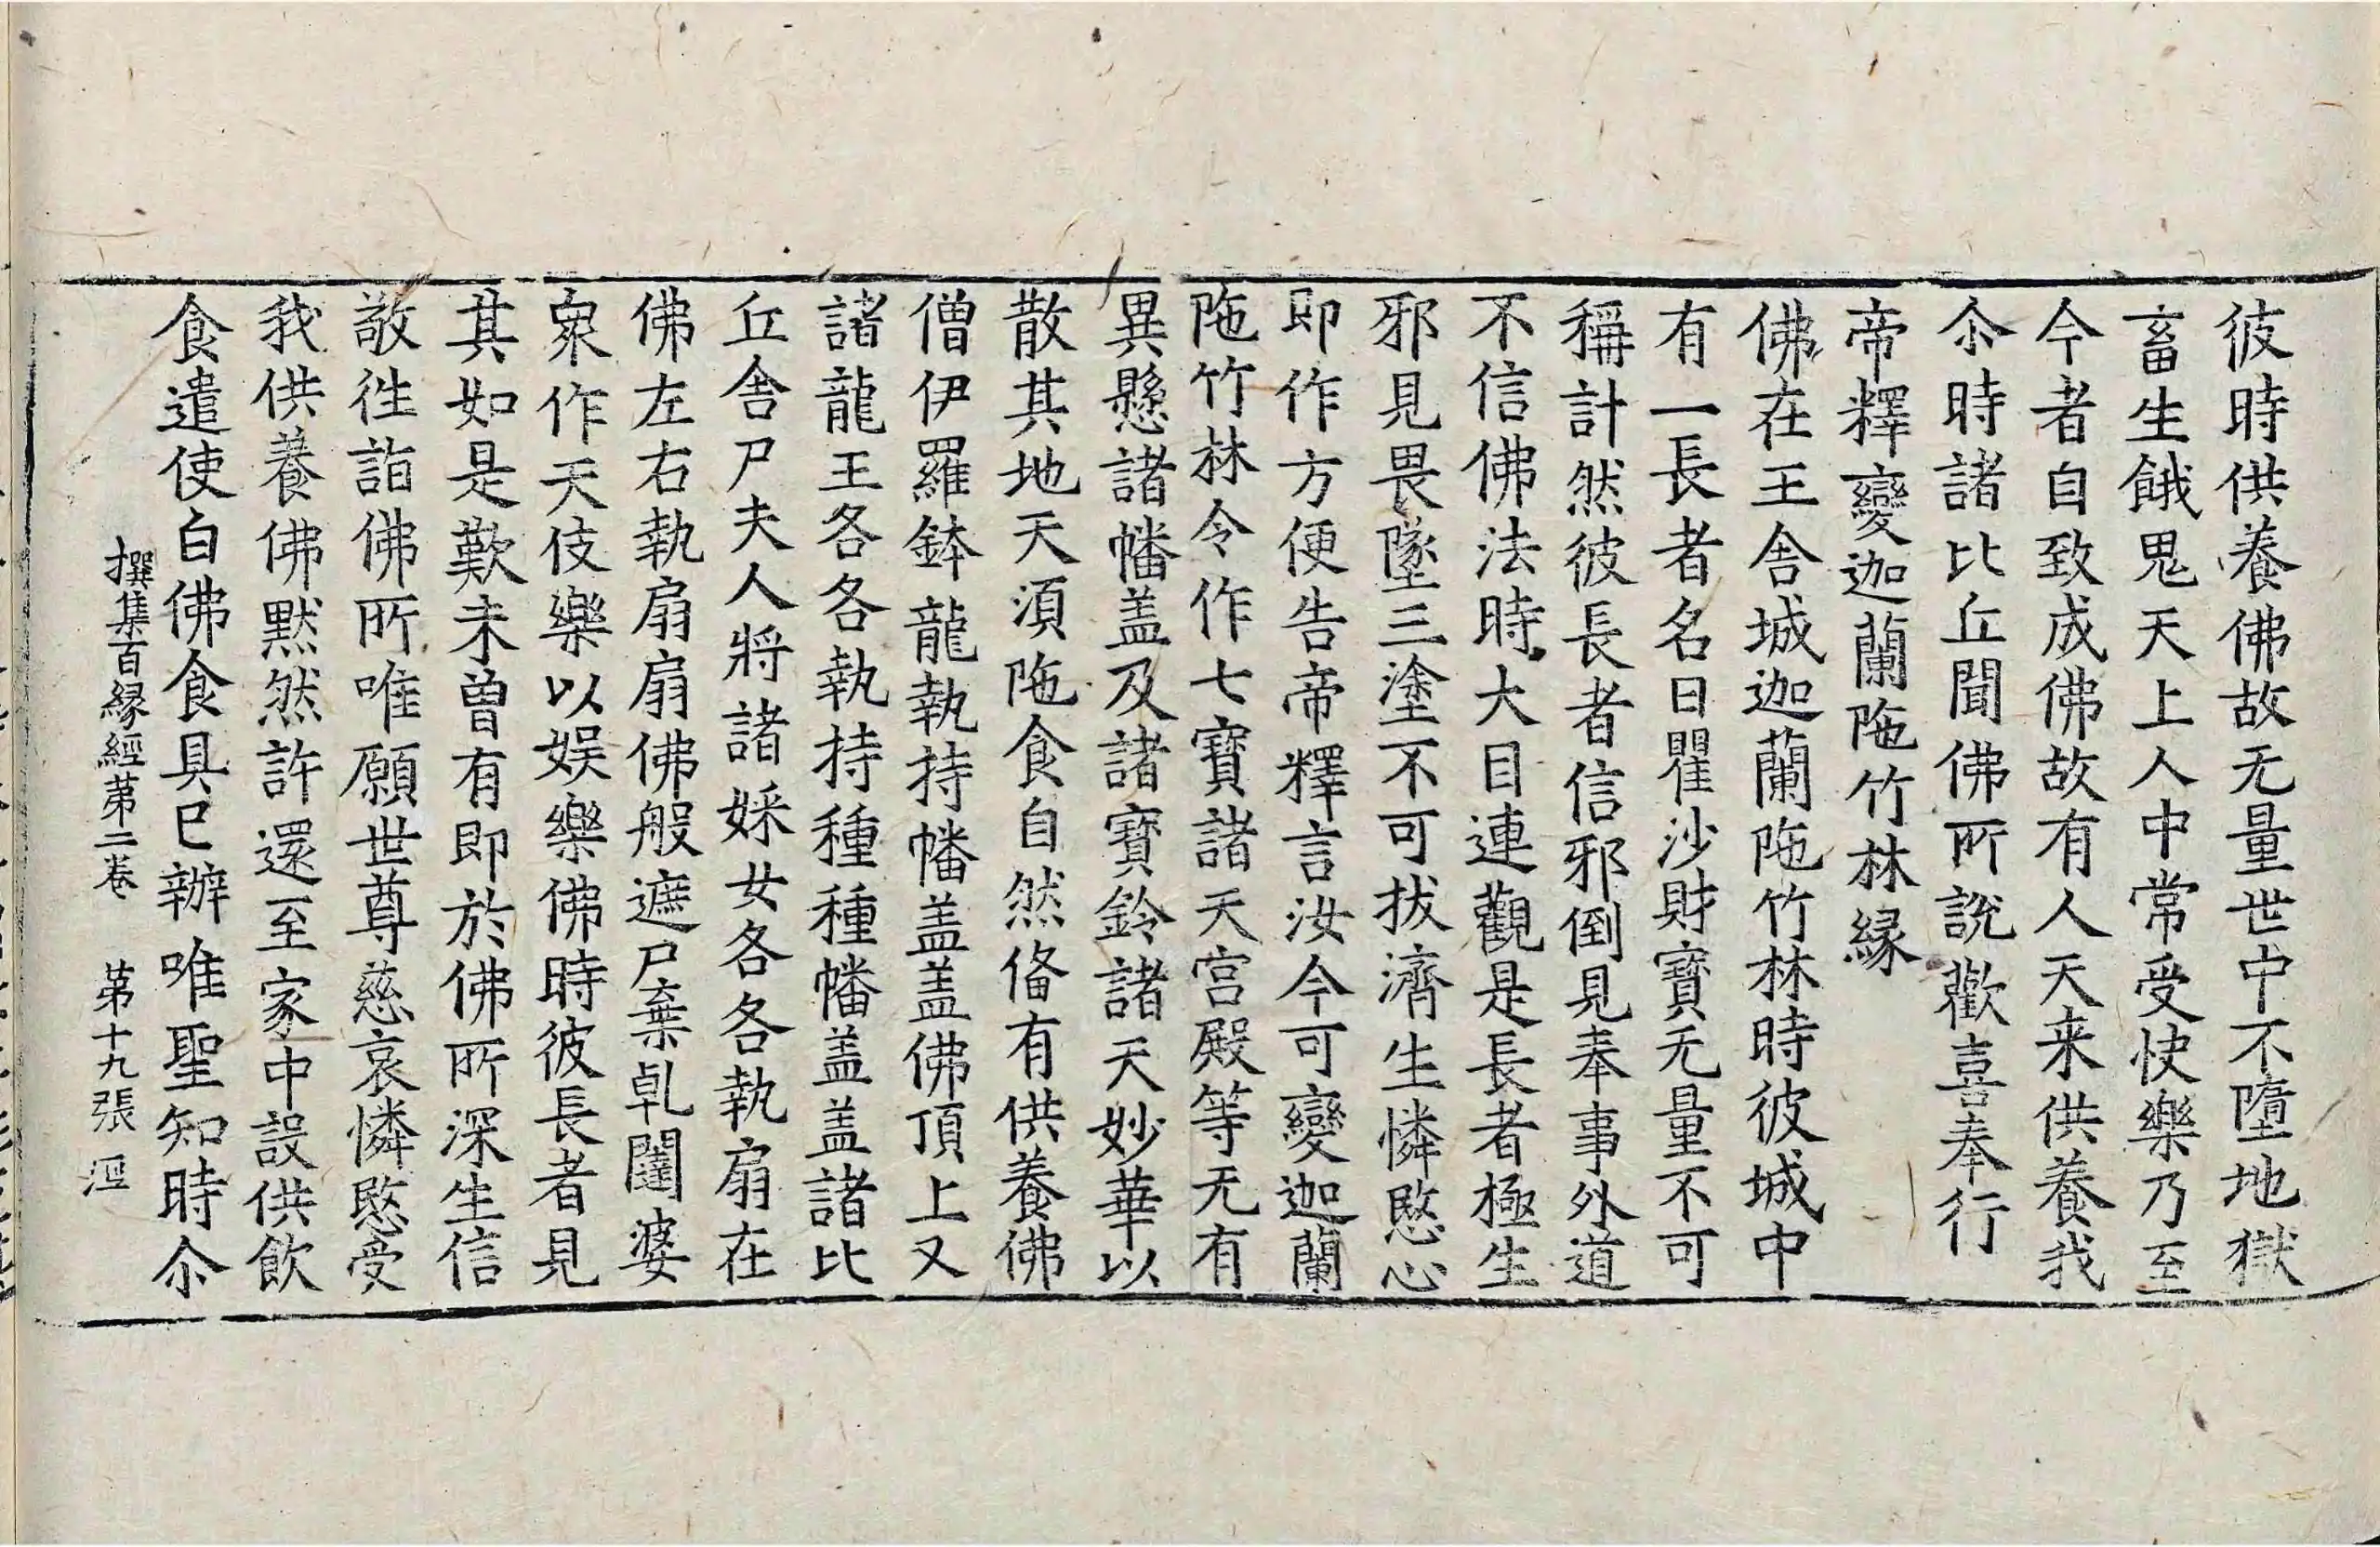 彼時供養佛故无量世中不墮地獄
畜生餓鬼天上人中常受快樂乃至
今者自致成佛故有人天来供養我
尒時諸比丘聞佛所說歡喜奉行
帝釋變迦蘭陁竹林緣
佛在王舍城迦蘭陁竹林時彼城中
有一長者名曰瞿沙財寶无量不可
稱計然彼長者信邪倒見奉事外道
不信佛法時大目連觀是長者極生
邪見畏墜三塗不可拔濟生憐愍心
即作方便告帝釋言汝今可變迦蘭
陁竹林令作七寶諸天宮殿等无有
異懸諸幡盖及諸寶鈴諸天妙華以
散其地天湏陁食自然俻有供養佛
僧伊羅鉢龍執持幡盖盖佛頂上又
諸龍王各各執持種種幡盖盖諸比
丘舍尸夫人將諸婇女各各執扇在
佛左右執扇扇佛般遮尸棄乹闥婆
衆作天伎樂以娱樂佛時彼長者見
其如是歎未曾有即於佛所深生信
敬徃詣佛所唯願世尊慈哀憐愍受
我供養佛默然許還至家中設供飲
食遣使白佛食具已辦唯聖知時尒
撰集百緣經苐二卷　苐十九張　涇